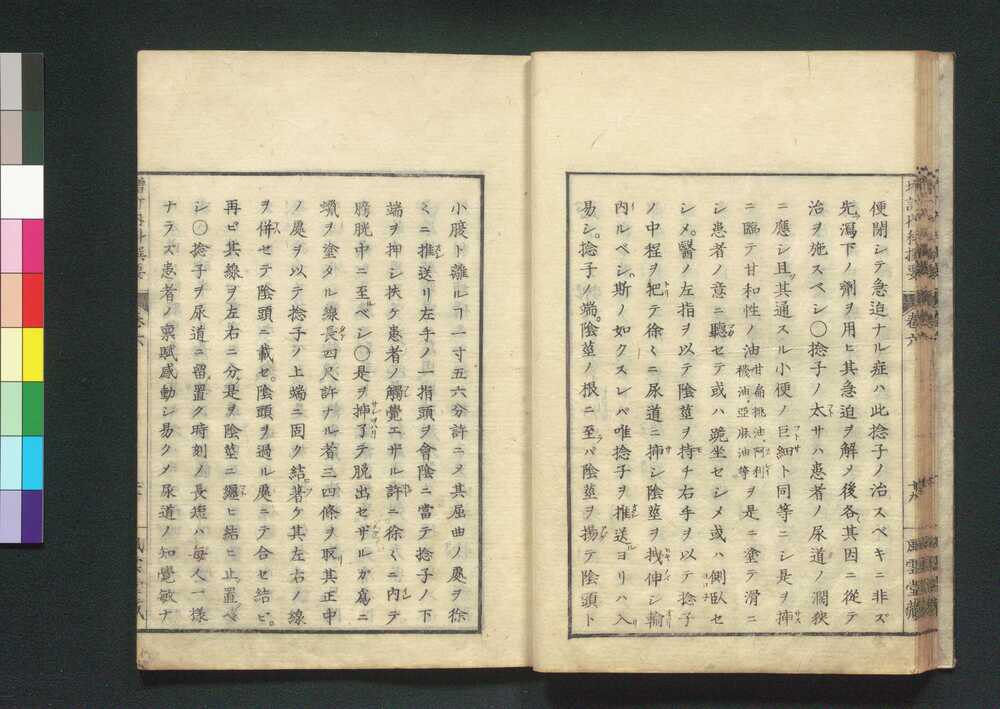 便閉シテ急迫ナル症ハ此捻子ノ治スベキニ非ズ
先瀉下ノ劑ヲ用ヒ其急迫ヲ解メ後各其因ニ従テ
治ヲ施スベシ〇捻子ノ太サハ患者ノ尿道ノ濶狹
ニ應シ且其通スル小便ノ巨細ト同等ニシ是ヲ挿
ニ臨テ甘和性ノ油 甘扁桃油、阿利機油、亞麻油等 ヲ是ニ塗テ滑ニ
シ患者ノ意ニ聽セテ或ハ跪坐セシメ或ハ側臥セ
シメ醫ノ左指ヲ以テ陰莖ヲ持チ右手ヲ以テ捻子
ノ中程ヲ把テ徐〻ニ尿道ニ挿シ陰莖ヲ拽伸シ輸
内ルベシ斯ノ如クスレバ唯捻子ヲ推送ヨリハ入
易シ捻子ノ端陰莖ノ根ニ至バ陰莖ヲ揚テ陰頭ト
小腹ト離ルヿ一寸五六分許ニメ其屈曲ノ處ヲ徐
〻ニ推送リ左手ノ一指頭ヲ會陰ニ當テ捻子ノ下
端ヲ押シ扶ケ患者ノ觸覺エザル許ニ徐〻ニ内テ
膀胱中ニ至ルベシ〇是ヲ挿了テ脱出セザルガ爲ニ
蠟ヲ塗タル線長四尺許ナル者三四條ヲ取其正中
ノ處ヲ以テ捻子ノ上端ニ固ク結著ケ其左右ノ線
ヲ併セテ陰頭ニ載セ陰頭ヲ過ル處ニテ合セ結ヒ
再ヒ其線ヲ左右ニ分是ヲ陰莖ニ纒ヒ結ヒ止置ベ
シ〇捻子ヲ尿道ニ留置ク時刻ノ長短ハ毎人一様
ナラズ患者ノ稟賦感動シ易クメ尿道ノ知覺敏ナ